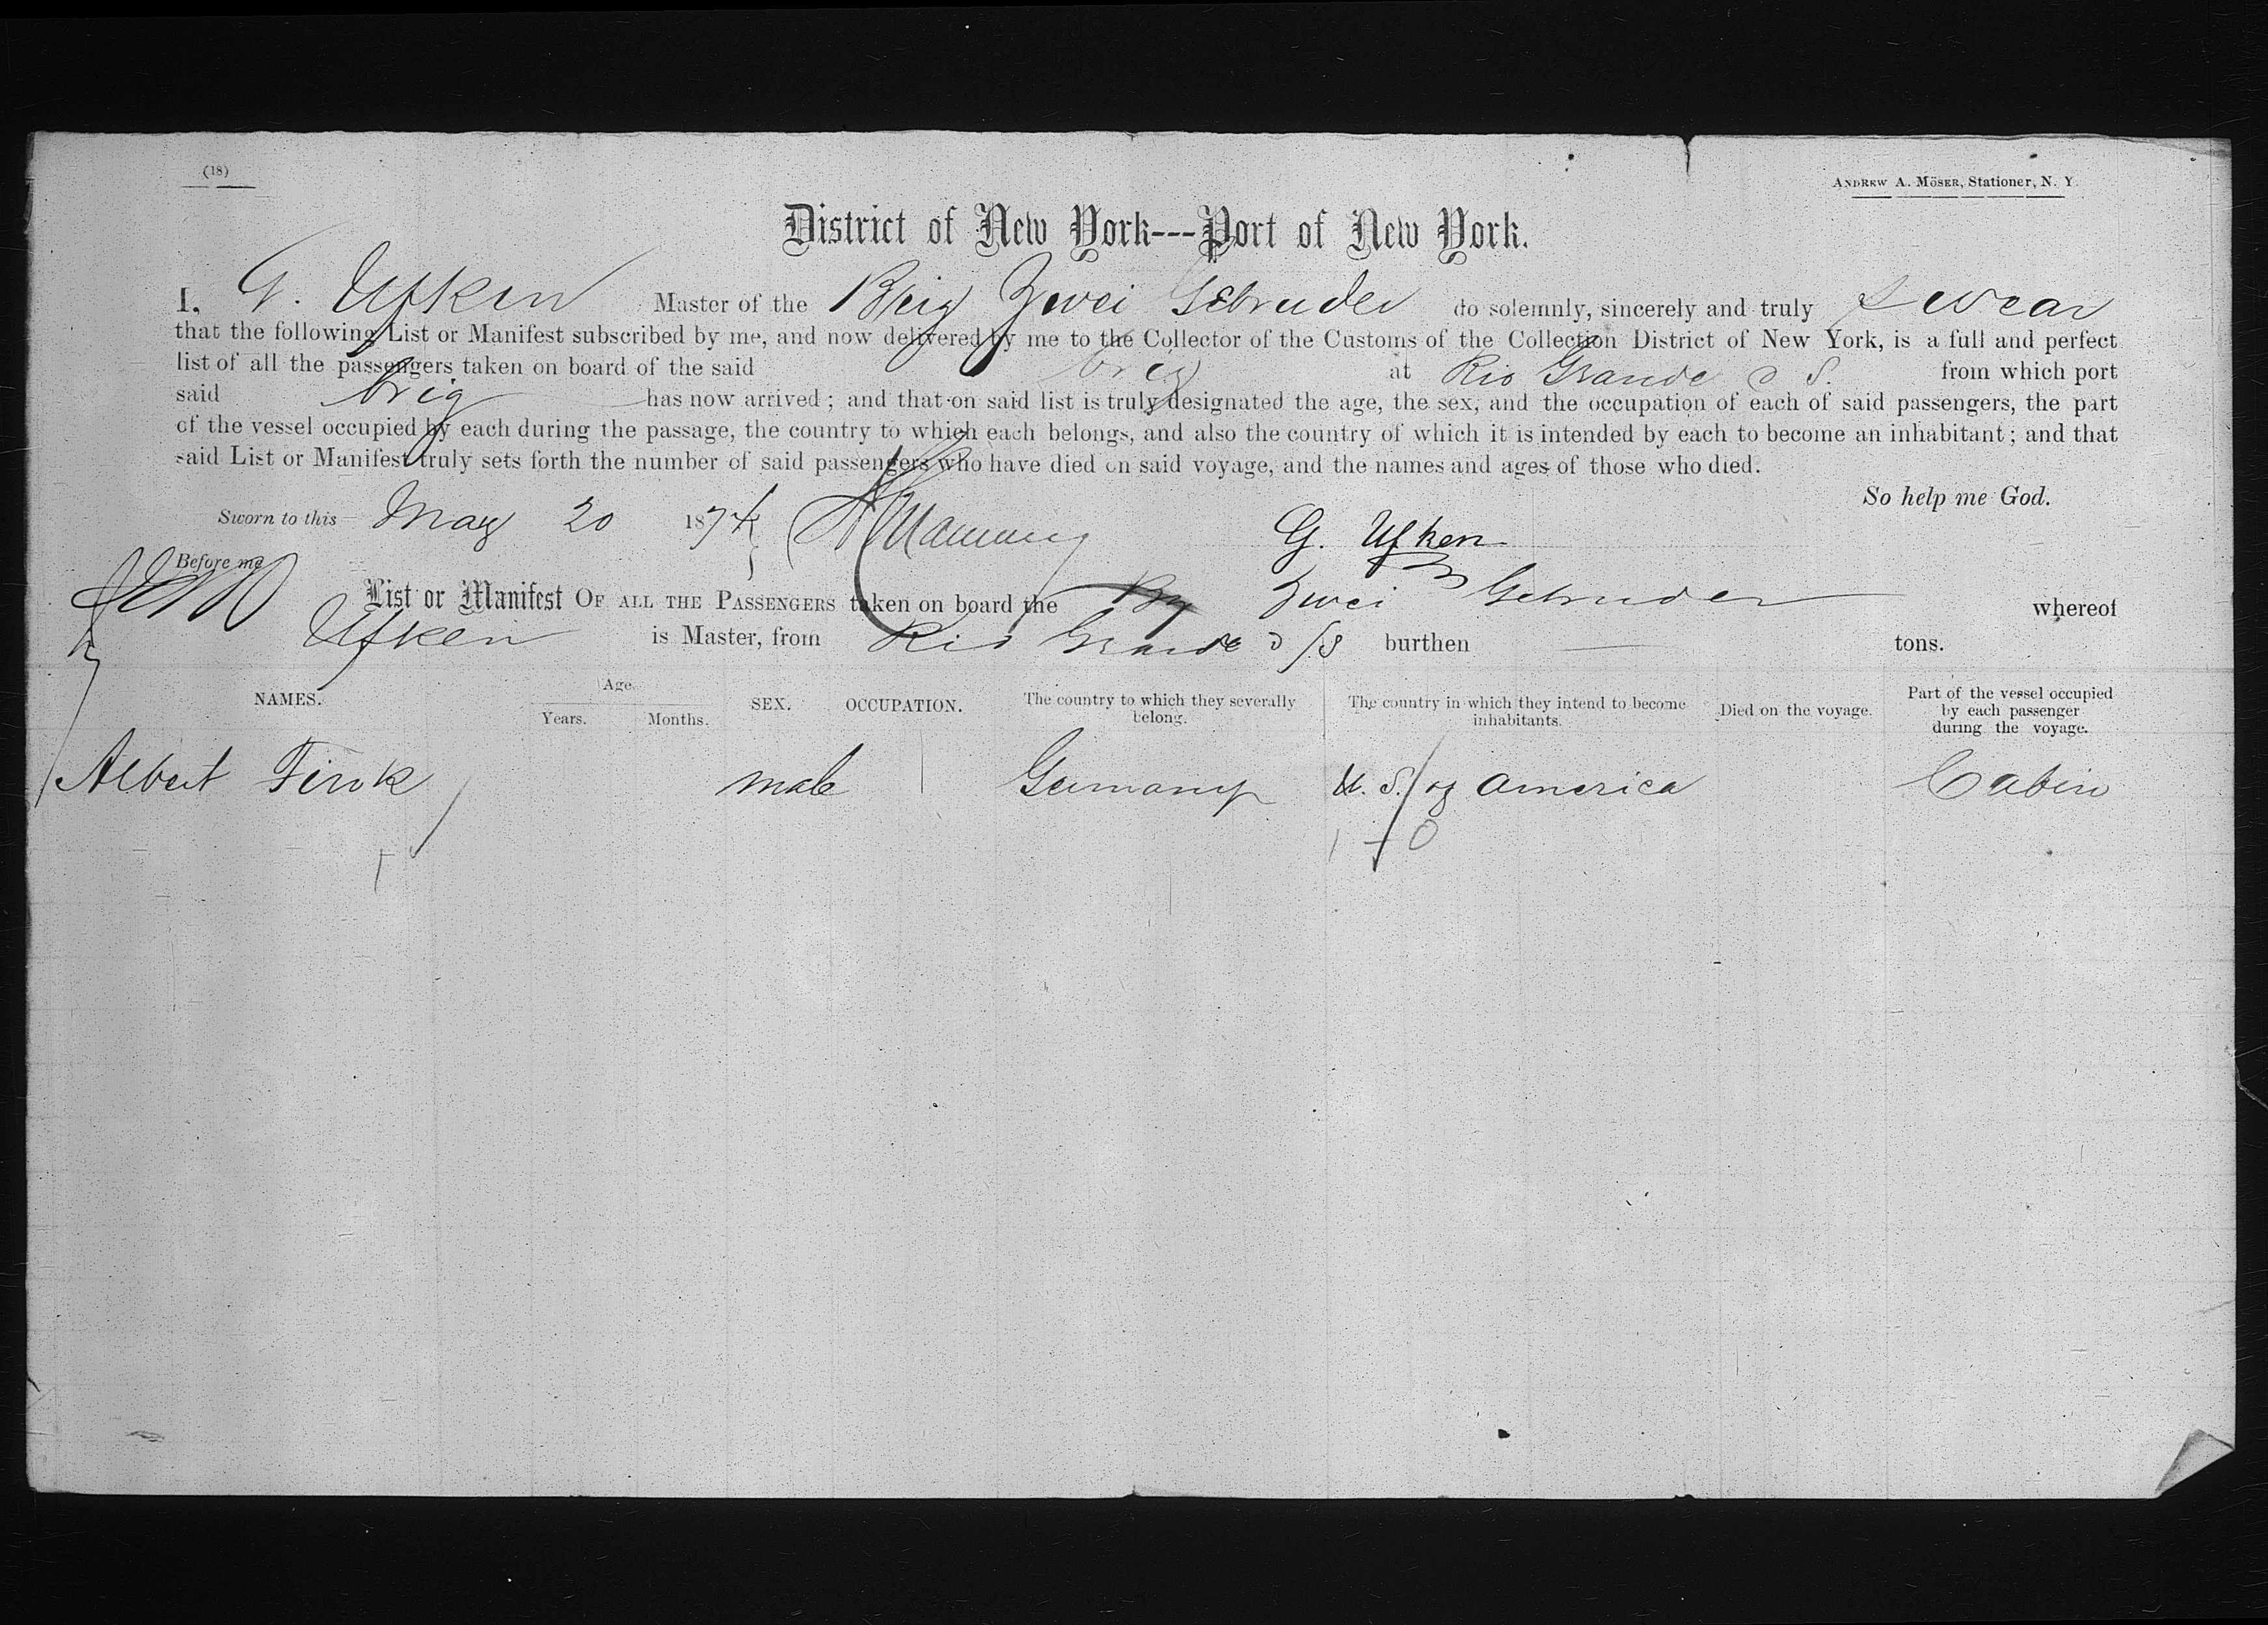 (18)
ANDREW A. MÖSER, Stationer, N. Y.
District of New York---Port of New York.
I, G. Ufken Master of the Brig Zwei Gebruder do solemnly, sincerely and truly swear
that the following List or Manifest subscribed by me, and now delivered by me to the Collector of the Customs of the Collection District of New York, is a full and perfect
list of all the passengers taken on board of the said brig at Rio Grande d S. from which port
said brig has now arrived; and that on said list is truly designated the age, the sex, and the occupation of each of said passengers, the part
of the vessel occupied by each during the passage, the country to which each belongs, and also the country of which it is intended by each to become an inhabitant; and that
said List or Manifest truly sets forth the number of said passengers who have died on said voyage, and the names and ages of those who died.
So help me God.
Sworn to this May 20 1874 G. Ufken
Before me
List or Manifest OF ALL THE PASSENGERS taken on board the Bg Zwei Gebruder whereof
Ufken is Master, from Rio Grande d/S burthen — tons.
NAMES. Age. SEX. OCCUPATION. The country to which they severally belong. The country in which they intend to become inhabitants. Died on the voyage. Part of the vessel occupied by each passenger during the voyage.
Years. Months.
Albert Fink male Germany U. S. of America Cabin
1 - 0